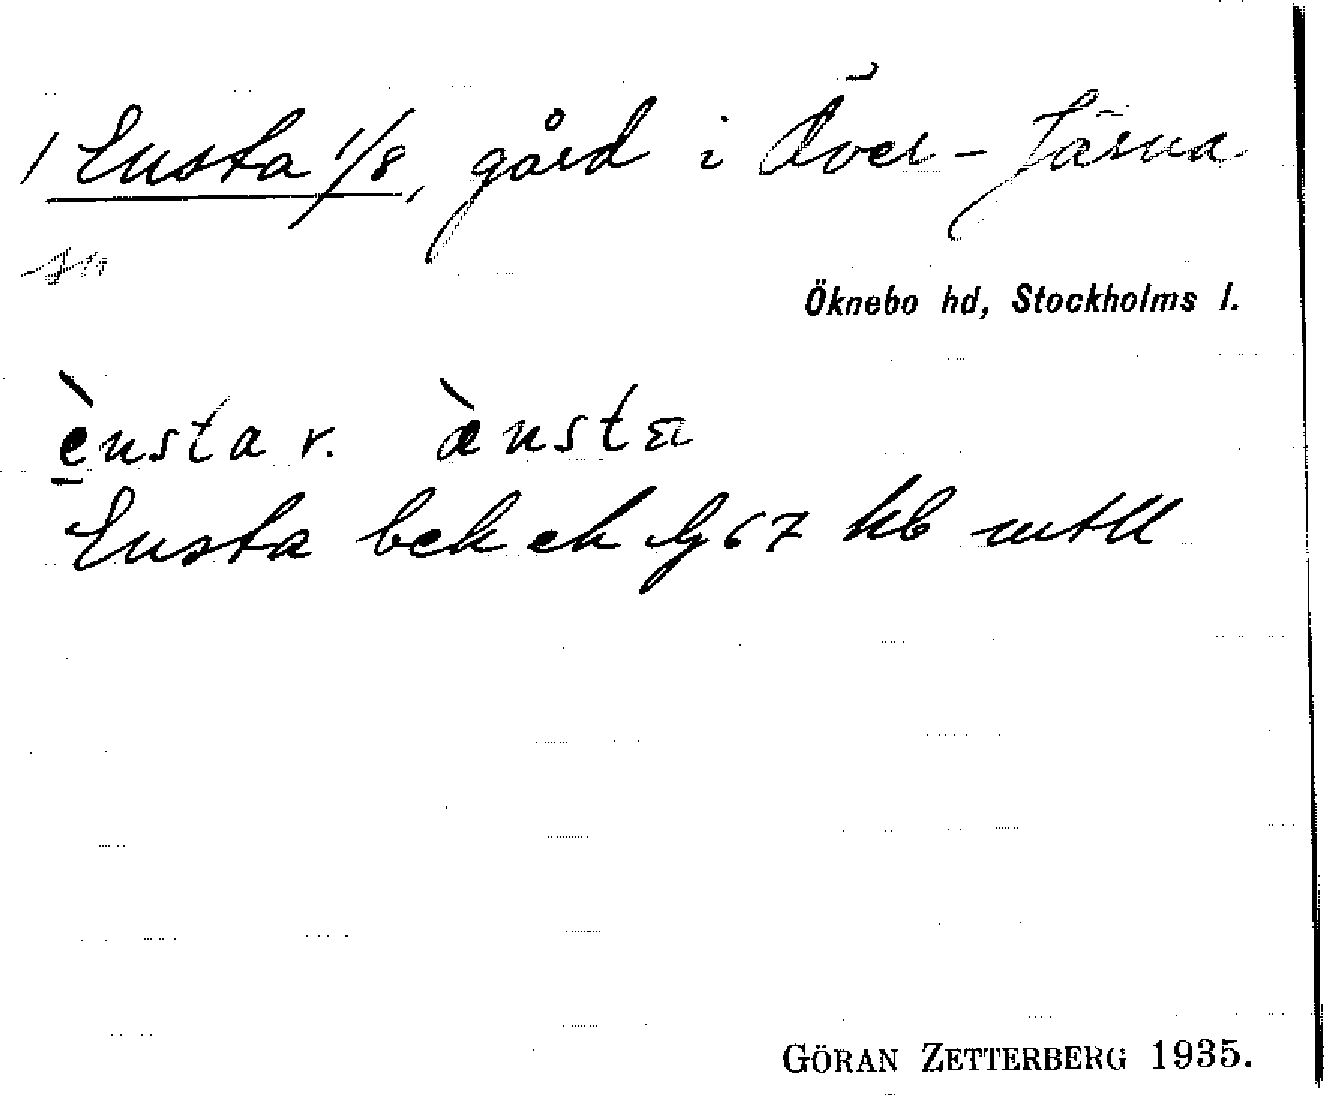 / Ensta 1/8, gård i Över-Järna
sn
Öknebo hd, Stockholms l.
ènsta r. ænsta
Ensta bek ek lg 67 hb mtll
GÖRAN ZETTERBERG 1935.